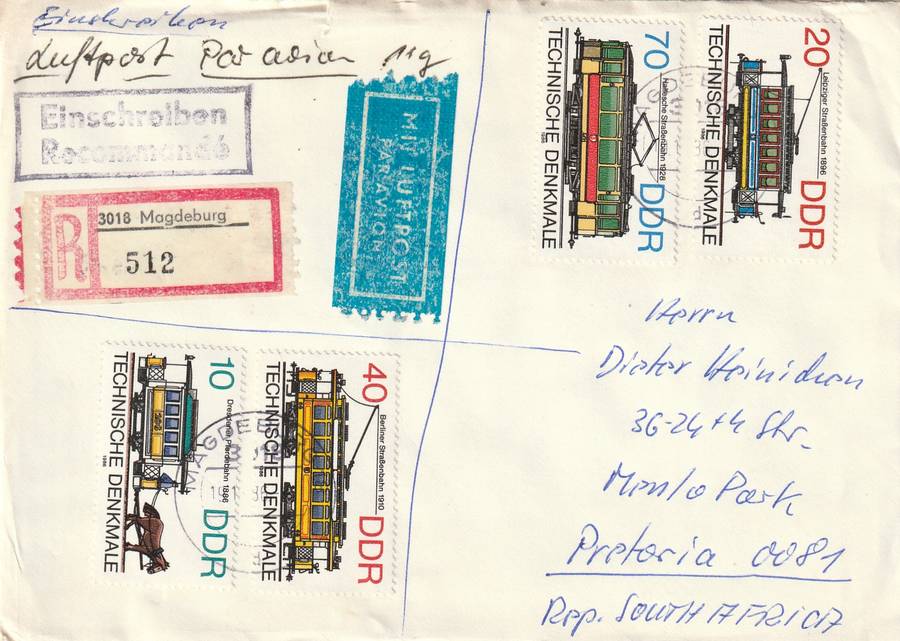 Einschreiben
Luftpost Par avion 11g
Einschreiben
Recommandé
MIT LUFTPOST
PAR AVION
R
3018 Magdeburg
512
70
Hallesche Straßenbahn 1928
DDR
TECHNISCHE DENKMALE
1986
20
Leipziger Straßenbahn 1896
DDR
TECHNISCHE DENKMALE
1986
10
Dresdener Pferdebahn 1886
DDR
TECHNISCHE DENKMALE
1986
40
Berliner Straßenbahn 1910
DDR
TECHNISCHE DENKMALE
1986
MAGDEB
Herrn
Dieter Heinichen
36-24th Str.
Menlo Park
Pretoria 0081
Rep. SOUTH AFRICA